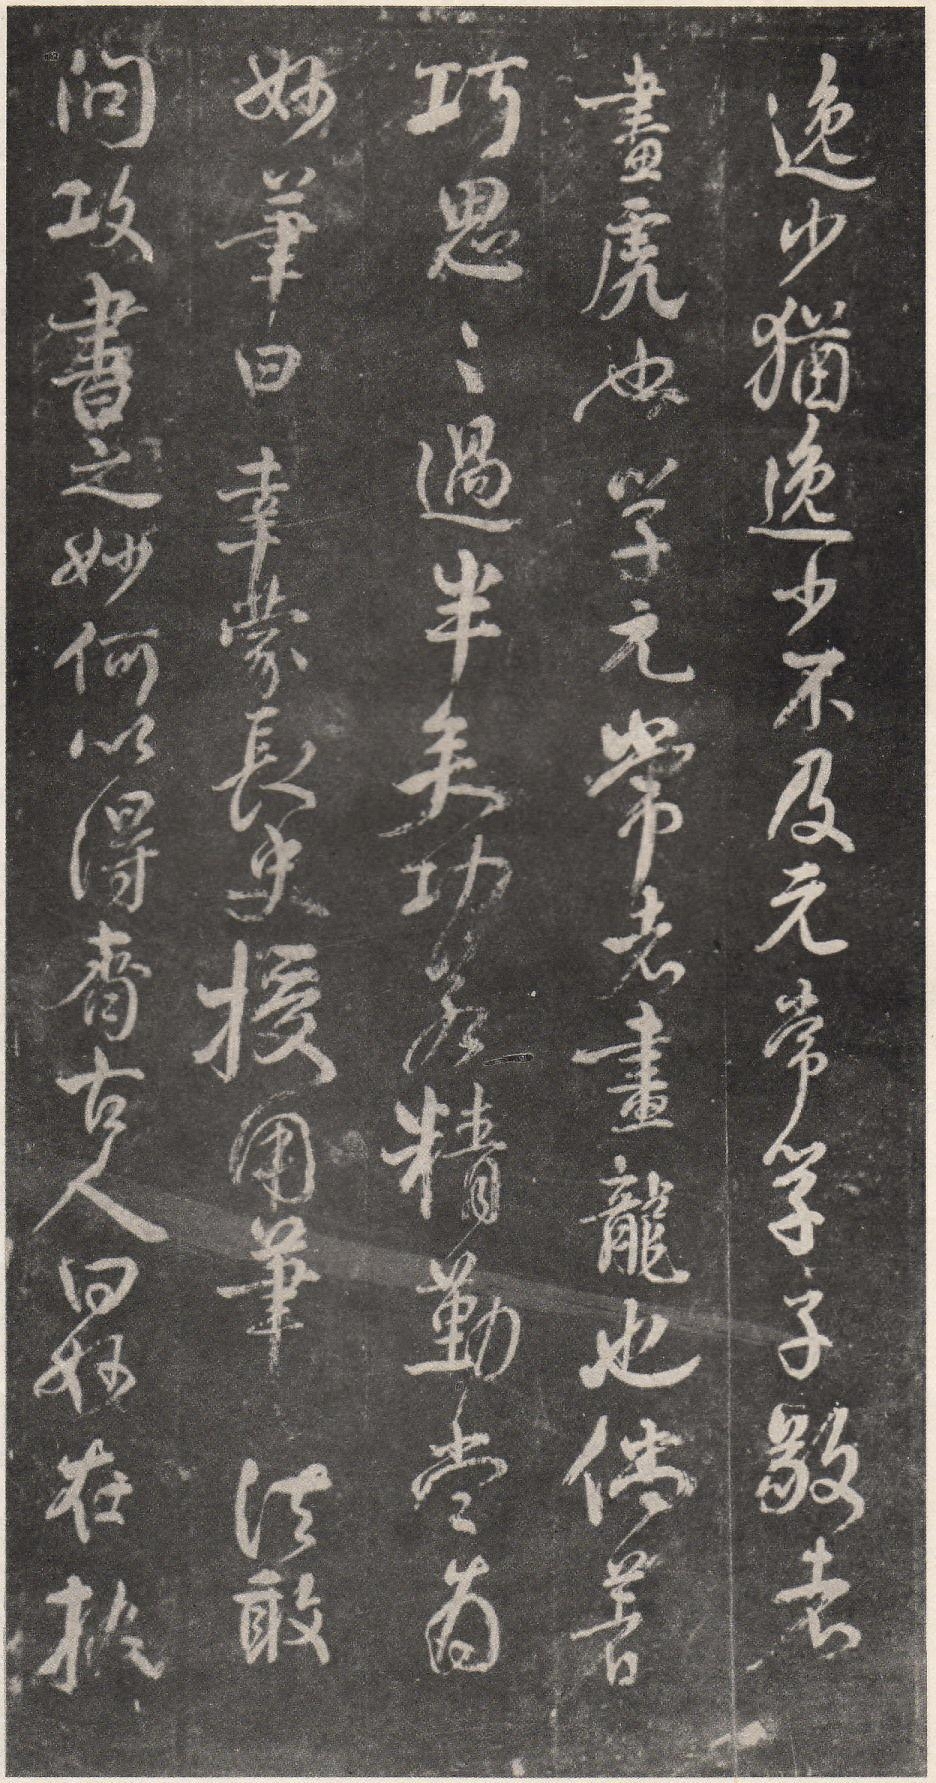 逸少猶逸少不及元常學子敬者
畫虎也學元常者畫龍也倘著
巧思思過半矣功若精勤當為
妙筆曰幸蒙長史授用筆法敢
問攻書之妙何以得齊古人曰妙在執